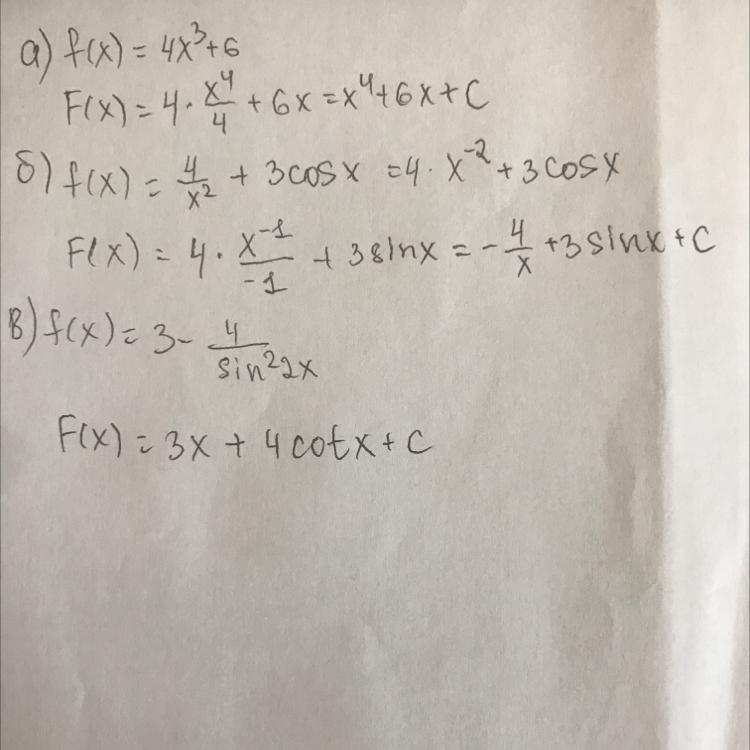 а) f(x) = 4x³+6
F(x) = 4 · x⁴/4 + 6x = x⁴+6x+C
б) f(x) = 4/x² + 3cosx = 4 · x⁻² + 3cosx
F(x) = 4 · x⁻¹/-1 + 3sinx = - 4/x + 3sinx + C
в) f(x) = 3 - 4/sin²2x
F(x) = 3x + 4cotx + C